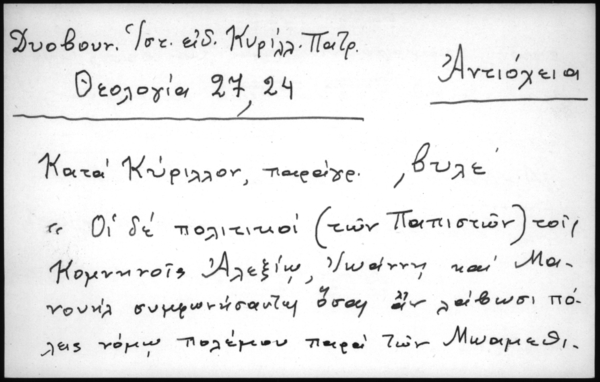 Δυοβουν. Ἱστ. εἰδ. Κυρίλλ. Πατρ.
Θεολογία 27, 24
Ἀντιόχεια
Κατά Κύριλλον, παράγρ. ͵βυλε´
"Οἱ δέ πολιτικοί (τῶν Παπιστῶν) τοῖς
Κομνηνοῖς Ἀλεξίῳ, Ἰωάννῃ καί Μα-
νουήλ συμφωνήσαντες ὅσας ἄν λάβωσι πό-
λεις νόμῳ πολέμου παρά τῶν Μωαμεθι-